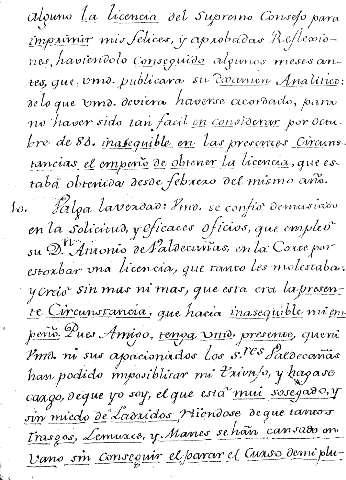 alguno la licencia del Supremo Consejo para
imprimir mis felices, y aprobadas Reflexio-
nes, haviendolo Conseguido algunos meses an-
tes, que Vmd. publicara su Examen Analitico:
de lo que Vmd. deviera haverse acordado, para
no haver sido tan facil en considerar por octu-
bre de 84. inasequible en las presentes Circuns-
tancias el empeño de obtener la licencia, que es-
taba obtenida desde febrero del mismo año.
10. Valga la verdad: Vmd. se confió demasiado
en la Solicitud, y eficaces oficios, que empleó
su Dn. Antonio de Valdecañas, en la Corte por
estorbar una licencia, que tanto les molestaba:
y creió sin mas ni mas, que esta era la presen-
te Circunstancia, que hacia inasequible mi em-
peño. Pues Amigo, tenga Vmd. presente, que ni
Vmd. ni sus apacionados los Sres Valdecañas
han podido imposiblitar mi Triunfo, y hagase
cargo, de que yo soy, el que está mui sosegado, y
sin miedo de Ladridos, riendose de que tantos
Trasgos, Lemures, y Manes se hán cansado en
vano sin conseguir el parar el Curso de mi plu-